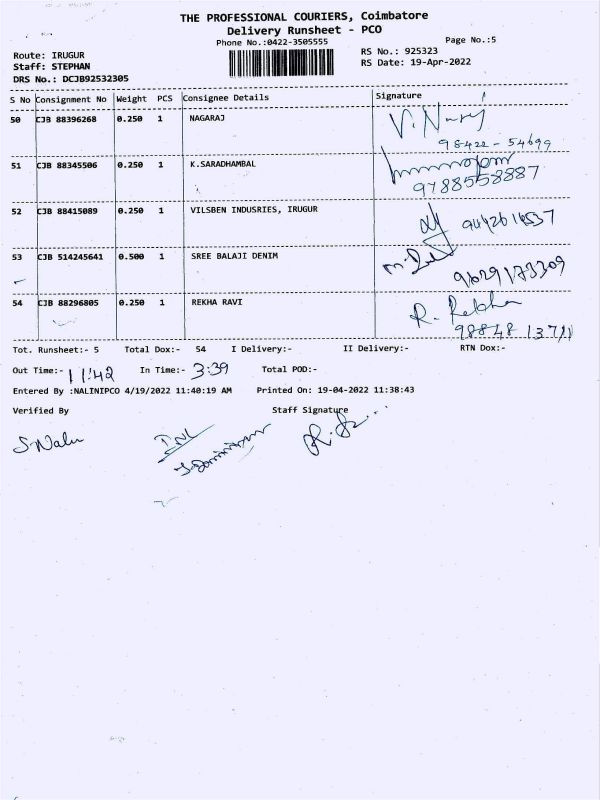 THE PROFESSIONAL COURIERS, Coimbatore
Delivery Runsheet - PCO
Phone No.:0422-3505555
Page No.:5
Route: IRUGUR
RS No.: 925323
Staff: STEPHAN
RS Date: 19-Apr-2022
DRS No.: DCJB92532305
S No Consignment No Weight PCS Consignee Details Signature
50 CJB 88396268 0.250 1 NAGARAJ
98422-54699
51 CJB 88345506 0.250 1 K.SARADHAMBAL
9788558887
52 CJB 88415089 0.250 1 VILSBEN INDUSRIES, IRUGUR
53 CJB 514245641 0.500 1 SREE BALAJI DENIM
9629173309
54 CJB 88296805 0.250 1 REKHA RAVI
R. Rekha
Tot. Runsheet:- 5 Total Dox:- 54 I Delivery:- II Delivery:- RTN Dox:-
Out Time:- 11:42 In Time:- 3:39 Total POD:-
Entered By :NALINIPCO 4/19/2022 11:40:19 AM Printed On: 19-04-2022 11:38:43
Verified By Staff Signature